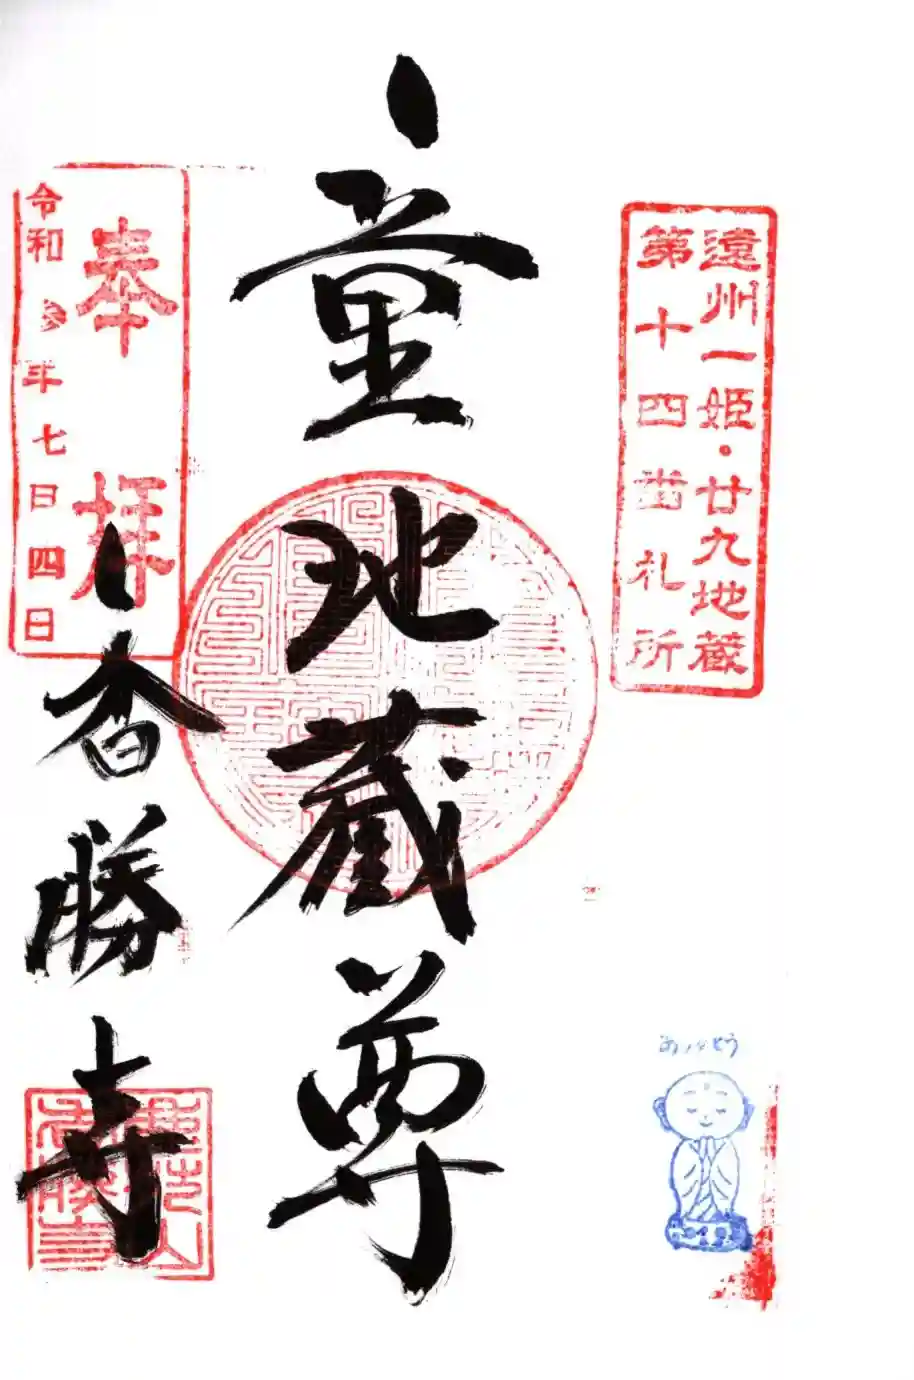 遠州一姫・廿九地蔵
第十四番札所
童地蔵尊
奉拝
令和参年七日四日
香勝寺
ありがとう